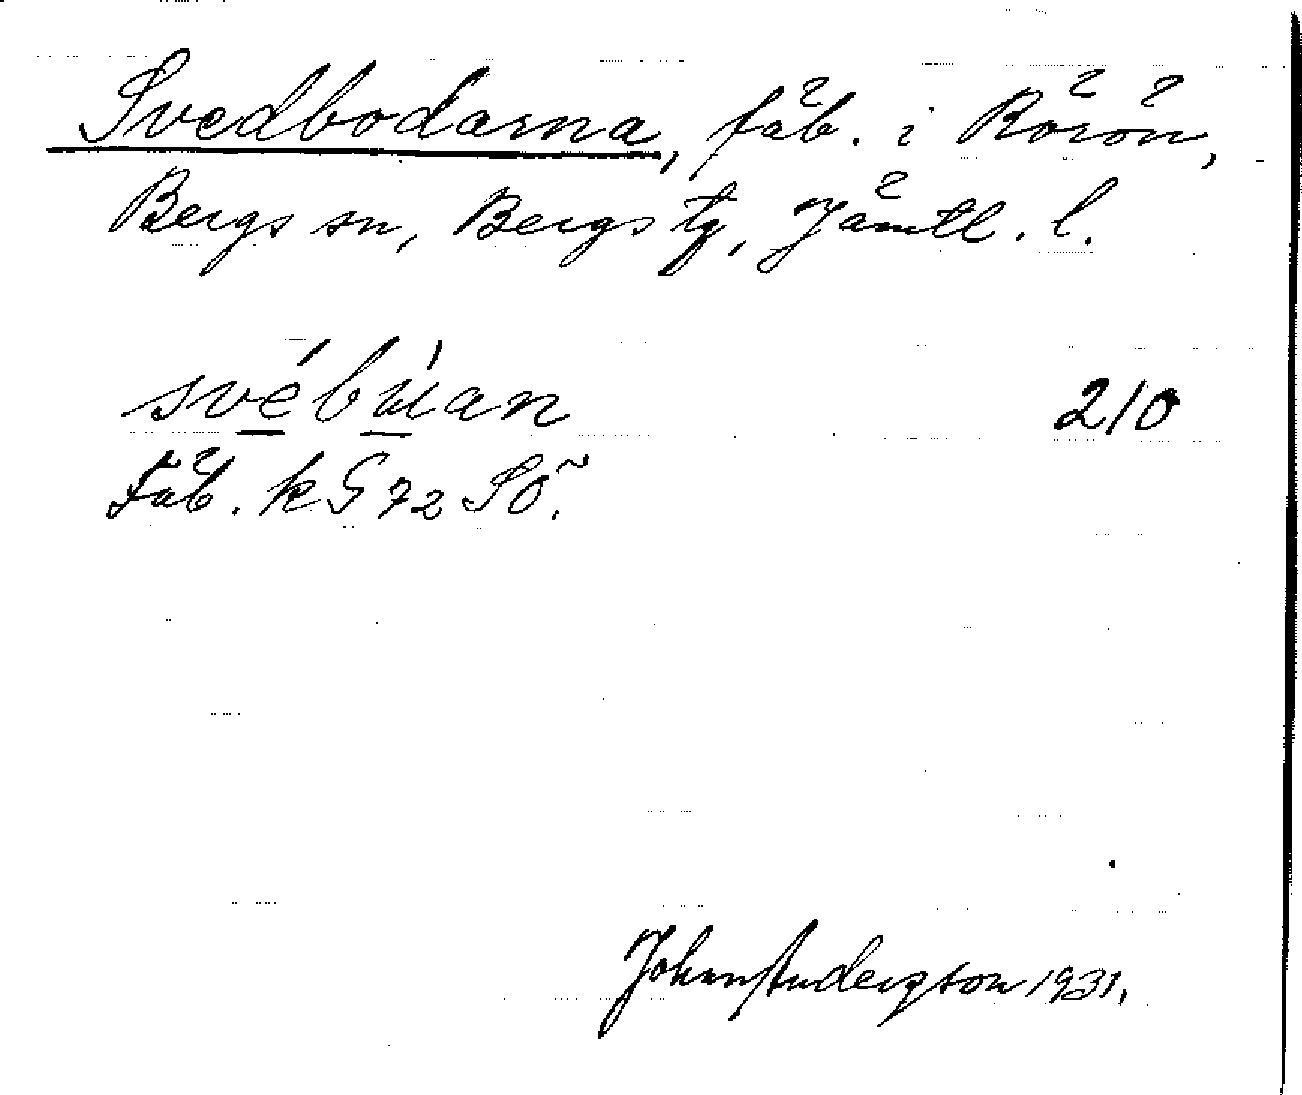 Svedbodarna, fäb. i Rörön,
Bergs sn, Bergs tg, Jämtl. l.
svébúan 210
Fäb. k G 72 SÖ.
Johan Andersson 1931.